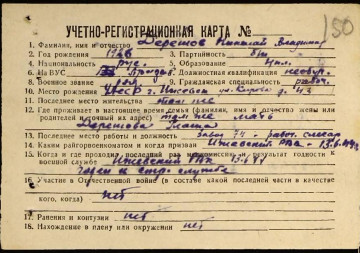 150
УЧЕТНО-РЕГИСТРАЦИОННАЯ КАРТА №
1. Фамилия, имя и отчество Николай
2. Год рождения 3. Партийность б/п
4. Национальность рус. 5. Образование
6. На ВУС Должностная квалификация необуч.
8. Военное звание Гражданская специальность рабоч.
10. Место рождения УАССР г. Ижевск ул. Кирова д.
11. Последнее место жительства там же
12. Где проживает в настоящее время семья (фамилия, имя и отчество жены или
родителей и точный их адрес) там же мать
13. Последнее место работы и должность завод 74 слесар
14. Каким райгорвоенкоматом и когда призван Ижевский РВК 13.
15. Когда и где проходил последний раз медкомиссию и результат годности к
военной службе Ижевский РВК
годен к стр. службе
16. Участие в Отечественной войне (в составе какой части в качестве кого,
когда) нет
17. Ранения и контузии нет
18. Нахождение в плену или окружении нет